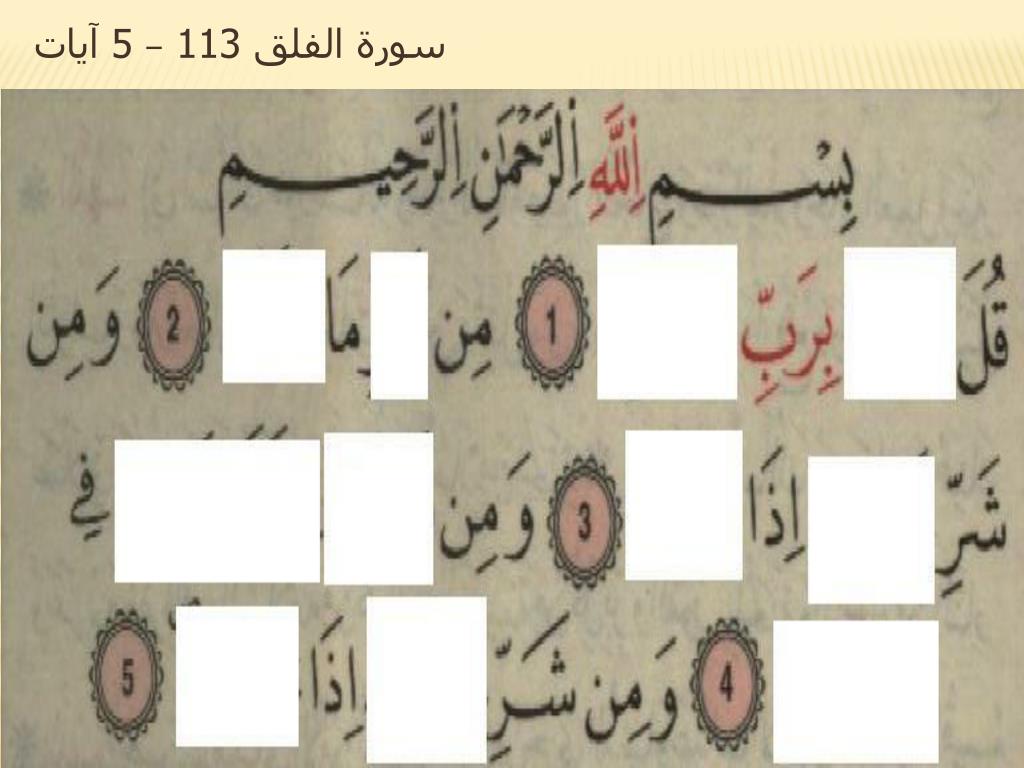 سورة الفلق 113 – 5 آيات
بِسْمِ اِللَّهِ اِلرَّحْمَٰنِ اِلرَّحِيمِ
قُلَ بِرَبِّ 1 مِن مَا 2 وَمِن
شَرِّ اِذَا 3 وَمِن فِے
4 وَمِن شَرِّ اِذَا 5